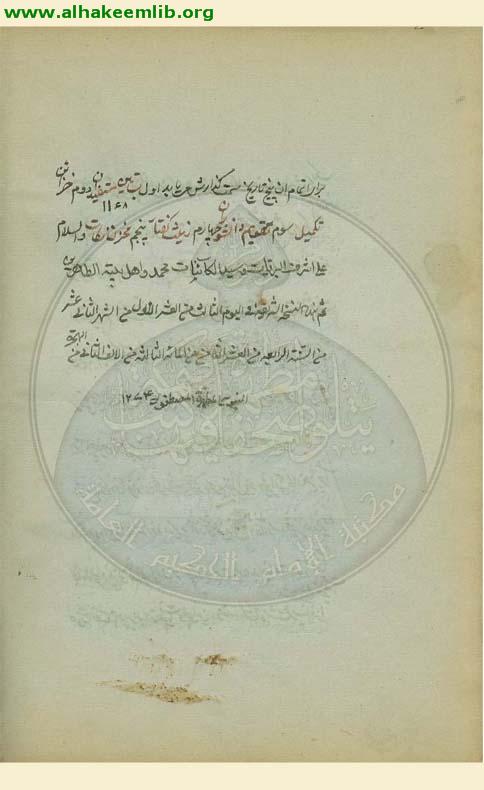 www.alhakeemlib.org
برای اتمام این پنج تاریخ ست گذارش می یابد اول تبیین مستفیدان دوم خزائن
١١٤٨
تکمیل سوم تقویم چهارم زینت کتاب پنجم مخزن نکات والسلام
علی اشرف البریات وسید الکائنات محمد واهل بیته الطاهرین
تم هذه النسخة الشریفة فی الیوم الثالث من العشر الاول من الشهر الثانی عشر
من السنة الرابعة من العشر الثامن من المائة الثالثة من الالف الثانی من الهجرة
النبویة المصطفویة ١٢٧٤
مكتبة الإمام الحكيم العامة